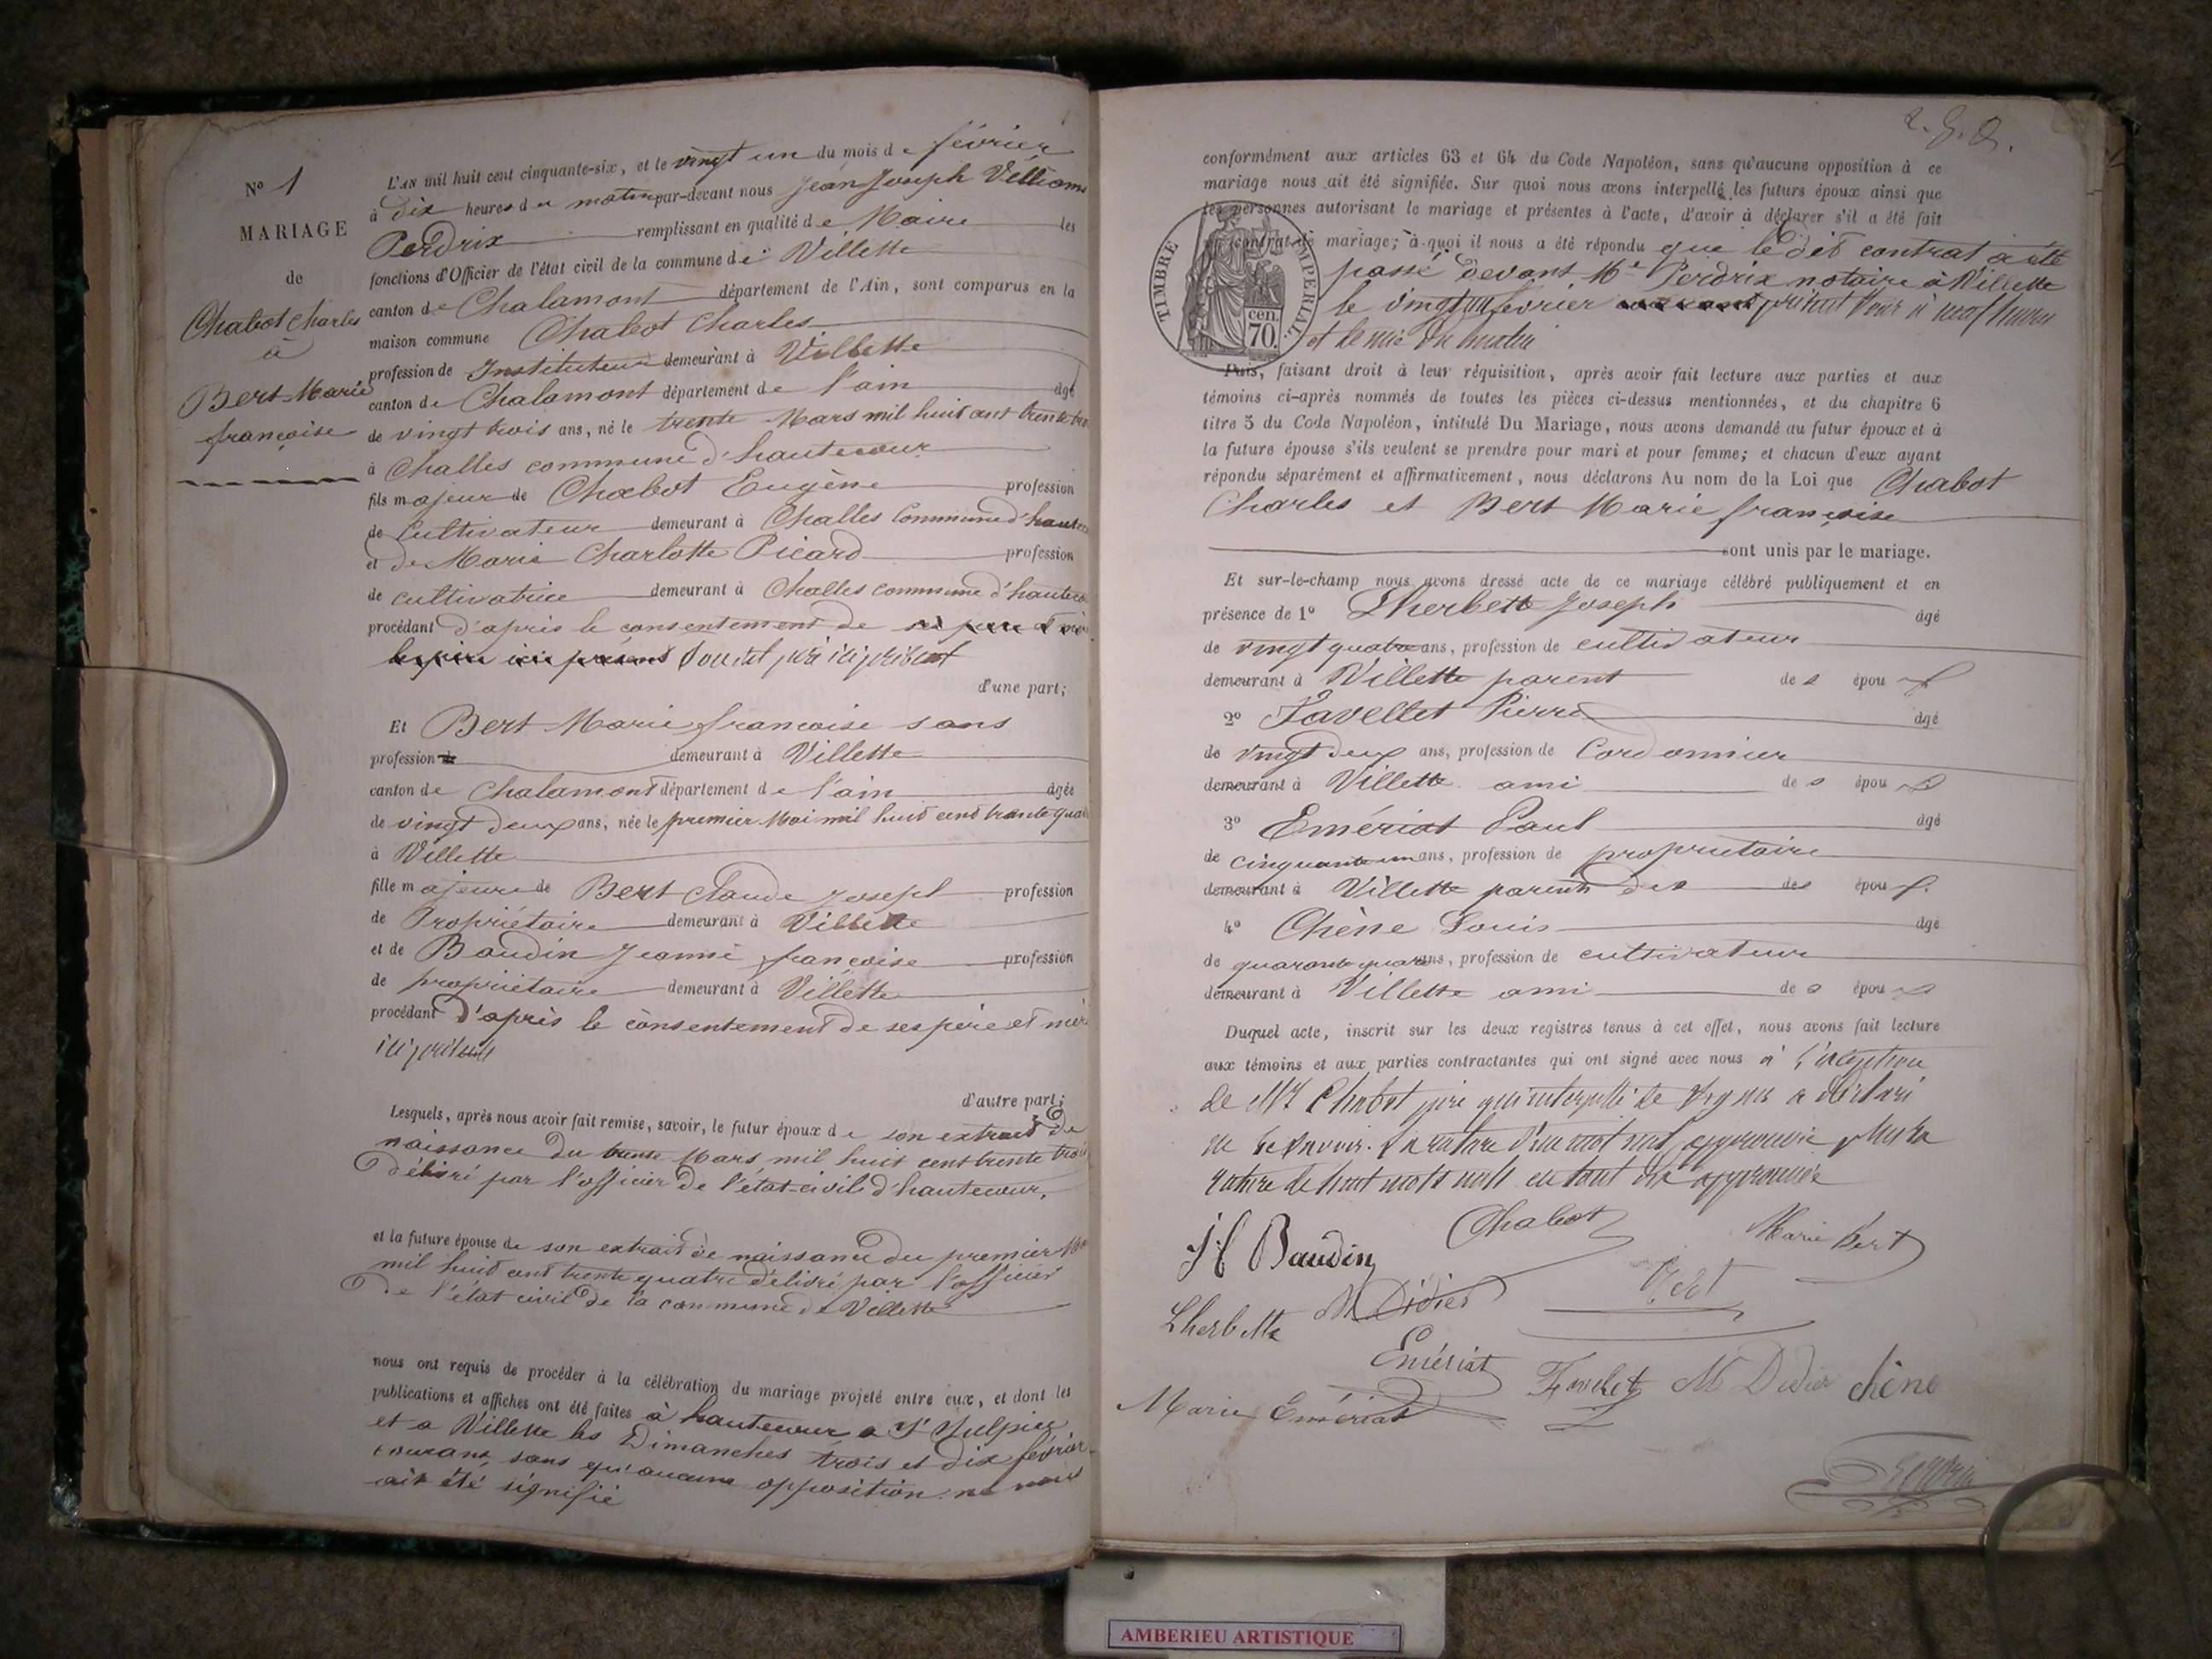 N° 1
MARIAGE
de
Chabot Charles
à
Bert Marie
françoise
L'AN mil huit cent cinquante-six, et le vingt un du mois de février
à dix heures du matin par-devant nous Jean Joseph
Perdrix remplissant en qualité de Maire les
fonctions d'Officier de l'état civil de la commune de Villette
canton de Chalamont département de l'Ain, sont comparus en la
maison commune Chabot Charles
profession de Instituteur demeurant à Villette
canton de Chalamont département de l'ain âgé
de vingt trois ans, né le trente Mars mil huit cent trente
à Challes commune d'hautecour
fils majeur de Chabot Eugène profession
de Cultivateur demeurant à Challes Commune d'haute
et de Marie Charlotte Picard profession
de cultivatrice demeurant à Challes commune d'hauteco
procédant d'après le consentement de
père ici présent
d'une part;
Et Bert Marie françoise sans
profession de demeurant à Villette
canton de Chalamont département de l'ain âgée
de vingt deux ans, née le premier Mai mil huit cent trente qua
à Villette
fille majeure de Bert Claude Joseph profession
de Propriétaire demeurant à Villette
et de Baudin Jeanne françoise profession
de propriétaire demeurant à Villette
procédant d'après le consentement de ses père et mère
ici présent
d'autre part;
Lesquels, après nous avoir fait remise, savoir, le futur époux de son extrait de
naissance du trente Mars mil huit cent trente trois
délivré par l'officier de l'état civil d'hautecour,
et la future épouse de son extrait de naissance du premier Mai
mil huit cent trente quatre délivré par l'officier
de l'état civil de la commune de Villette
nous ont requis de procéder à la célébration du mariage projeté entre eux, et dont les
publications et affiches ont été faites à hautecour a St Sulpice
et a Villette les Dimanches trois et dix février
courant, sans qu'aucune opposition ne nous
ait été signifié
conformément aux articles 63 et 64 du Code Napoléon, sans qu'aucune opposition à ce
mariage nous ait été signifiée. Sur quoi nous avons interpellé les futurs époux ainsi que
les personnes autorisant le mariage et présentes à l'acte, d'avoir à déclarer s'il a été fait
un contrat de mariage; à quoi il nous a été répondu que le dit contrat a été
passé devant Me Perdrix notaire à Villette
le vingt un février présent jour à neuf heures
et demie du matin
TIMBRE IMPERIAL
70 cen.
Puis, faisant droit à leur réquisition, après avoir fait lecture aux parties et aux
témoins ci-après nommés de toutes les pièces ci-dessus mentionnées, et du chapitre 6
titre 5 du Code Napoléon, intitulé Du Mariage, nous avons demandé au futur époux et à
la future épouse s'ils veulent se prendre pour mari et pour femme; et chacun d'eux ayant
répondu séparément et affirmativement, nous déclarons Au nom de la Loi que Chabot
Charles et Bert Marie françoise
sont unis par le mariage.
Et sur-le-champ nous avons dressé acte de ce mariage célébré publiquement et en
présence de 1° Lherbette Joseph âgé
de vingt quatre ans, profession de cultivateur
demeurant à Villette parent des épou
2° Favellet Pierre âgé
de vingt deux ans, profession de Cordonnier
demeurant à Villette ami des épou
3° Emériat Paul âgé
de cinquante un ans, profession de propriétaire
demeurant à Villette parent des des épou
4° Chêne Louis âgé
de quarante quatre ans, profession de cultivateur
demeurant à Villette ami des épou
Duquel acte, inscrit sur les deux registres tenus à cet effet, nous avons fait lecture
aux témoins et aux parties contractantes qui ont signé avec nous à l'exception
de Mr Chabot père qui interpellé de signer a déclaré
ne le savoir. La rature d'un mot nul approuvée plus la
rature de huit mots nuls en tout dix approuvée
Chabot
Marie Bert
J C Baudin
Bert
M Didier
Lherbette
Emériat
M Didier
chêne
Marie Emériat
Perdrix
AMBERIEU ARTISTIQUE